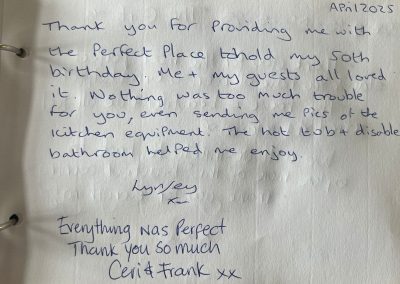 April 2025
Thank you for providing me with
the Perfect Place to hold my 50th
birthday. Me + my guests all loved
it. Nothing was too much trouble
for you, even sending me pics of the
kitchen equipment. The hot tub + disable
bathroom helped me enjoy.
Lynsey
x
Everything Was Perfect
Thank you so much
Ceri & Frank xx